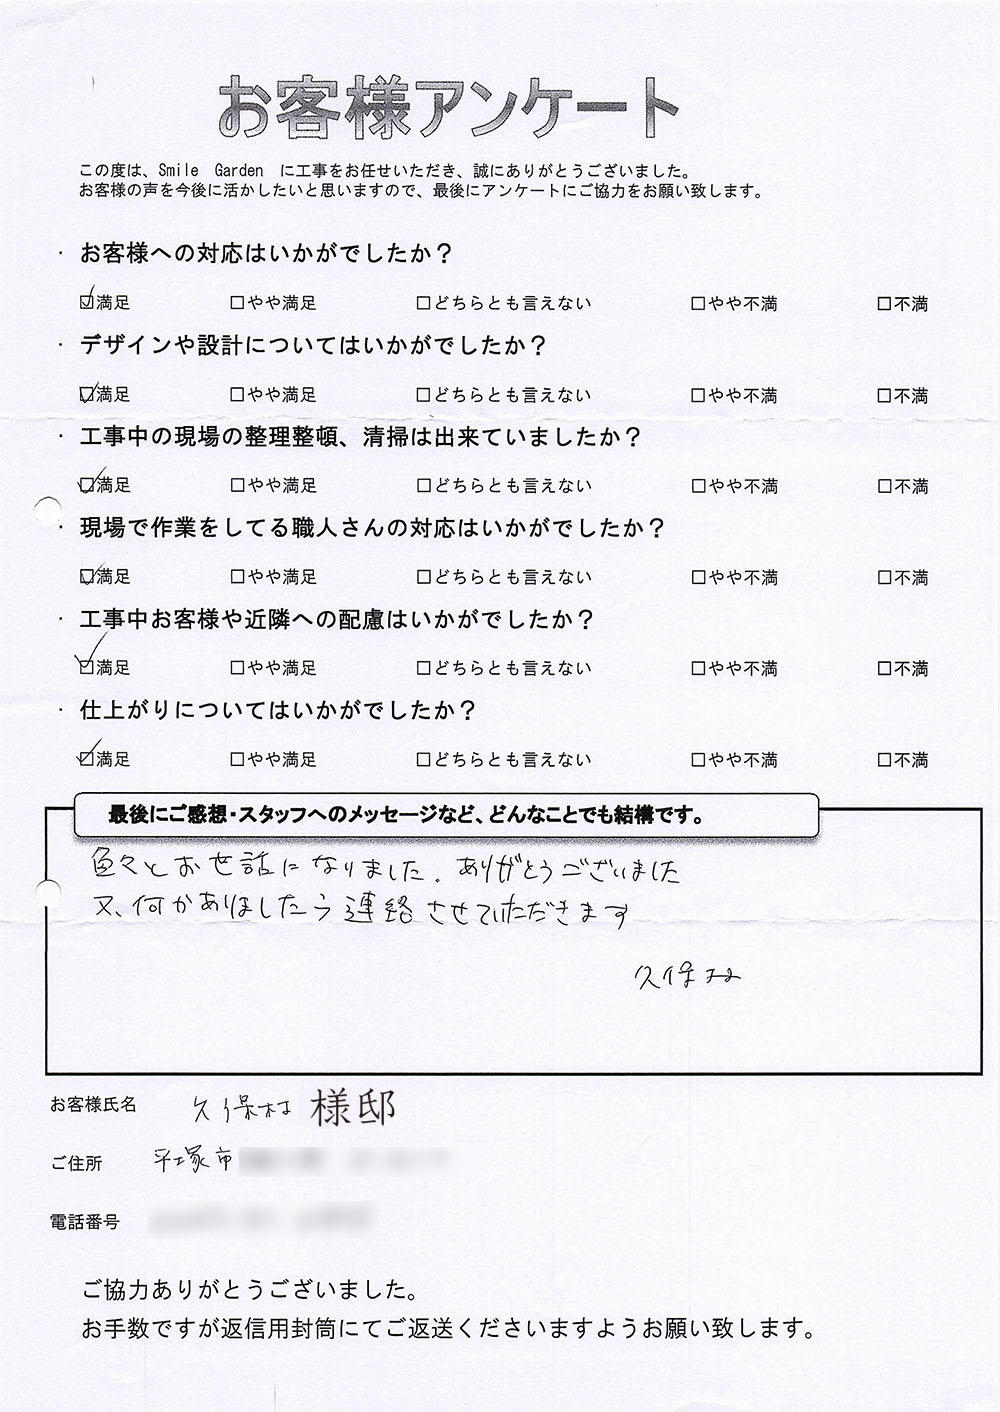 お客様アンケート
この度は、Smile Garden に工事をお任せいただき、誠にありがとうございました。
お客様の声を今後に活かしたいと思いますので、最後にアンケートにご協力をお願い致します。
・ お客様への対応はいかがでしたか？
☑満足 □やや満足 □どちらとも言えない □やや不満 □不満
・ デザインや設計についてはいかがでしたか？
☑満足 □やや満足 □どちらとも言えない □やや不満 □不満
・ 工事中の現場の整理整頓、清掃は出来ていましたか？
☑満足 □やや満足 □どちらとも言えない □やや不満 □不満
・ 現場で作業をしてる職人さんの対応はいかがでしたか？
☑満足 □やや満足 □どちらとも言えない □やや不満 □不満
・ 工事中お客様や近隣への配慮はいかがでしたか？
☑満足 □やや満足 □どちらとも言えない □やや不満 □不満
・ 仕上がりについてはいかがでしたか？
☑満足 □やや満足 □どちらとも言えない □やや不満 □不満
最後にご感想・スタッフへのメッセージなど、どんなことでも結構です。
色々とお世話になりました。ありがとうございました
又、何かありましたら連絡させていただきます
久保村
お客様氏名 久保村 様邸
ご住所 平塚市
電話番号
ご協力ありがとうございました。
お手数ですが返信用封筒にてご返送くださいますようお願い致します。